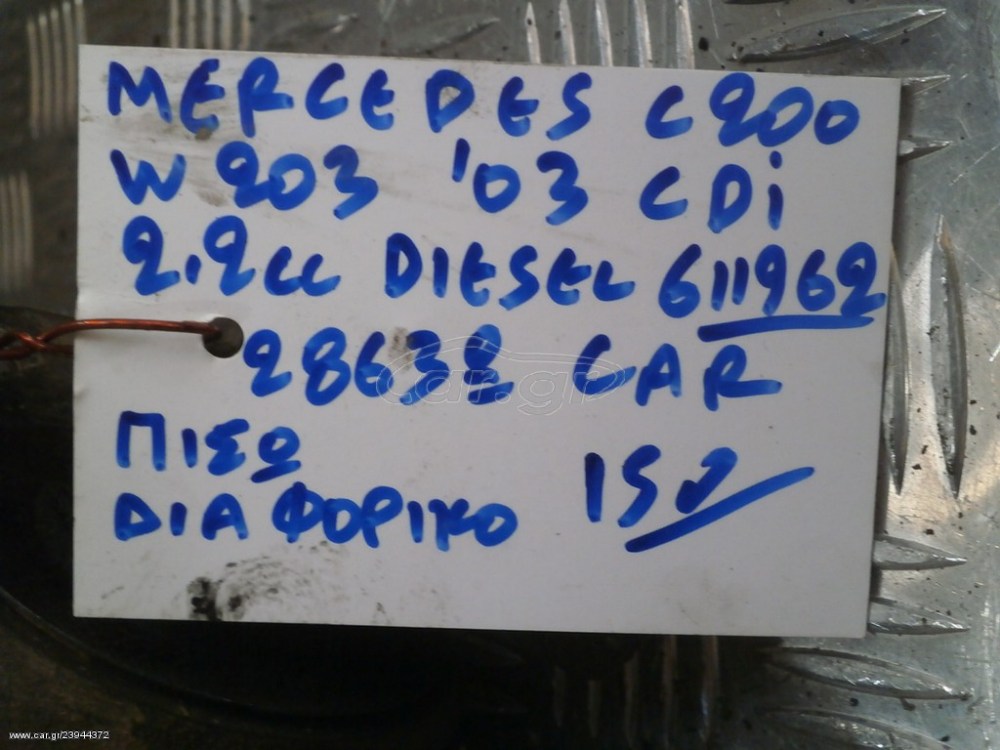 MERCEDES C200
W203 '03 CDi
2.2cc DIESEL 611962
28638 CAR
ΠΙΣΩ
ΔΙΑΦΟΡΙΚΟ
car.gr
www.car.gr/23944372